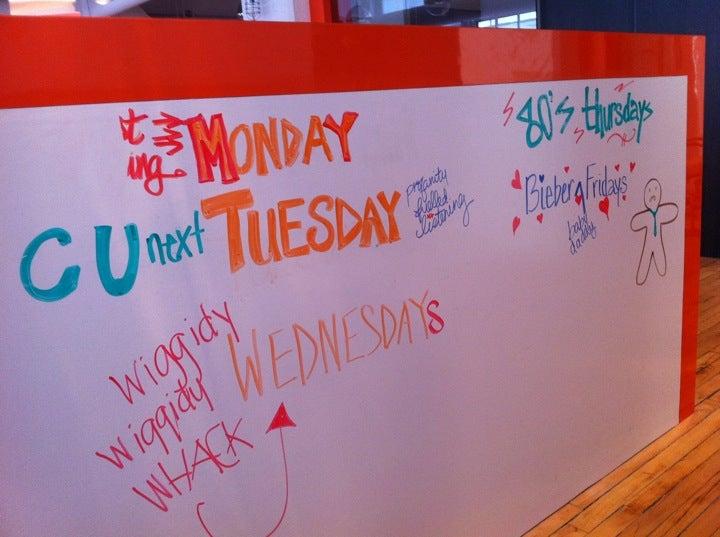 MONDAY
C U next TUESDAY
profanity
filled
listening
Wiggidy
Wiggidy
WHACK
WEDNESDAYs
80's thursdays
Bieber Fridays
baby
daddy